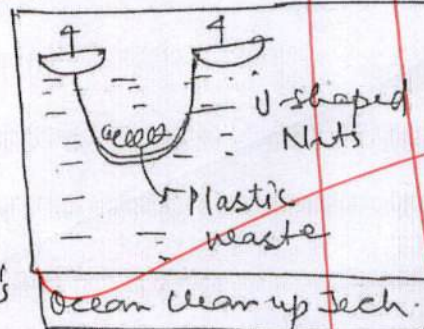 U shaped
Nets
Plastic
waste
Ocean clean up Tech.